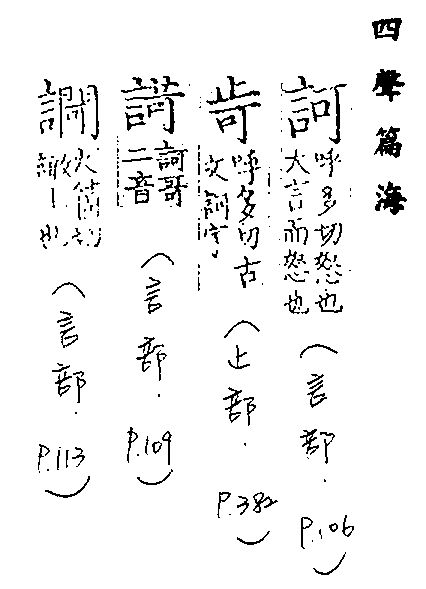 四聲篇海
訶
呼多切怒也
大言而怒也
(言部. P.106)
呼多切古
文訶字
(止部. P.382)
訶哥
二音
(言部. P.109)
(言部. P.113)